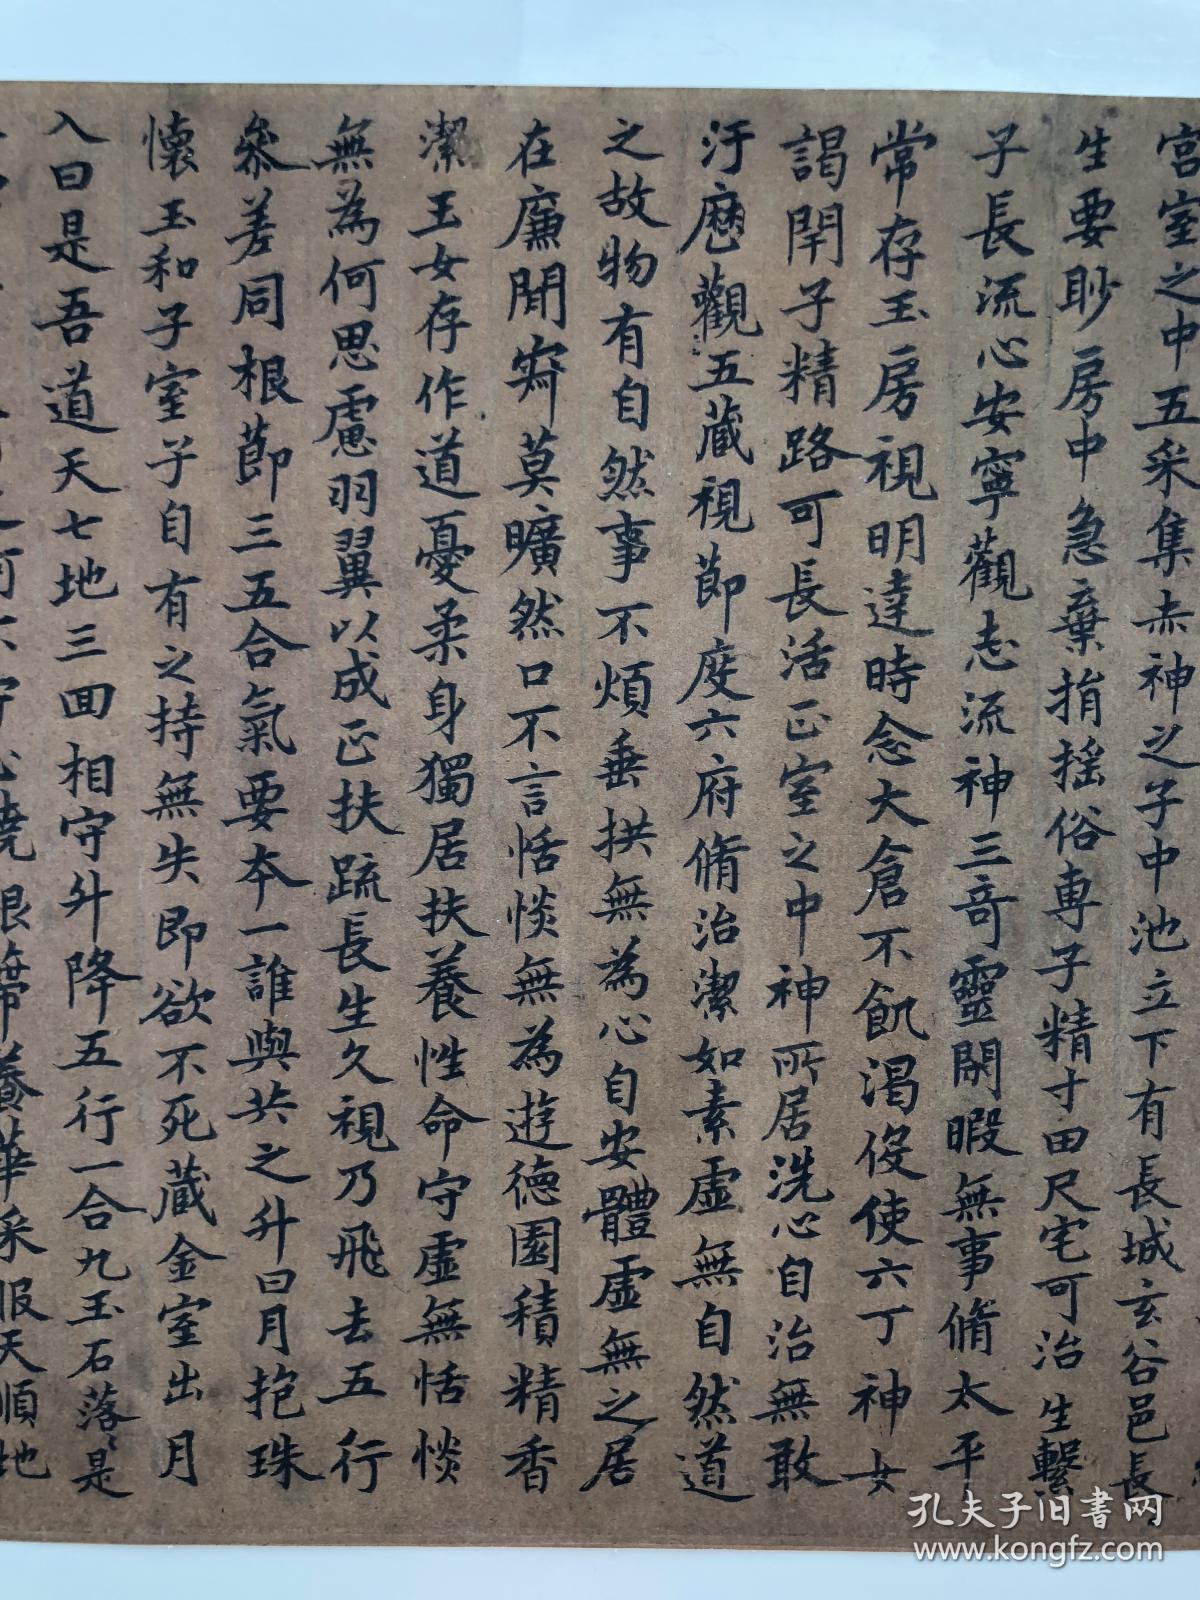 宮室之中五采集赤神之子中池立下有長城玄谷邑長
生要眇房中急棄捐搖俗專子精寸田尺宅可治生繫
子長流心安寧觀志流神三奇靈閑暇無事脩太平
常存玉房視明達時念大倉不飢渴役使六丁神女
謁閇子精路可長活正室之中神所居洗心自治無敢
汙歷觀五藏視節度六府脩治潔如素虛無自然道
之故物有自然事不煩垂拱無為心自安體虛無之居
在廉閒寂莫曠然口不言恬惔無為遊德園積精香
潔玉女存作道憂柔身獨居扶養性命守虛無恬惔
無為何思慮羽翼以成正扶疏長生久視乃飛去五行
參差同根節三五合氣要本一誰與共之升日月抱珠
懷玉和子室子自有之持無失即欲不死藏金室出月
入日是吾道天七地三回相守升降五行一合九玉石落〻是
養華采服天順地
孔夫子旧书网
www.kongfz.com